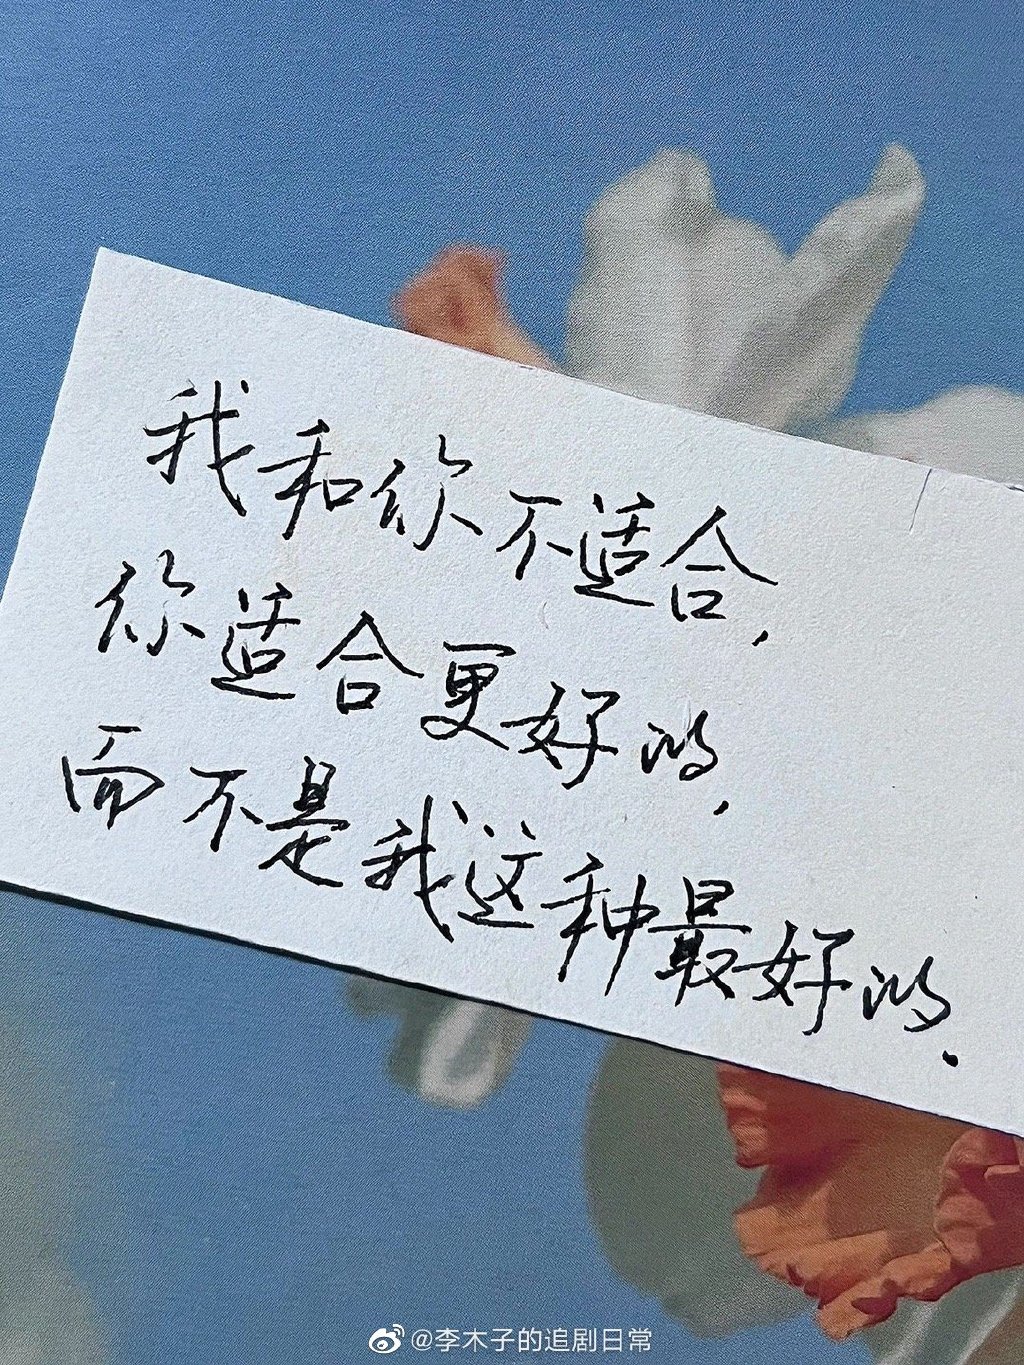 我和你不适合,
你适合更好的,
而不是我这种最好的.
@李木子的追剧日常